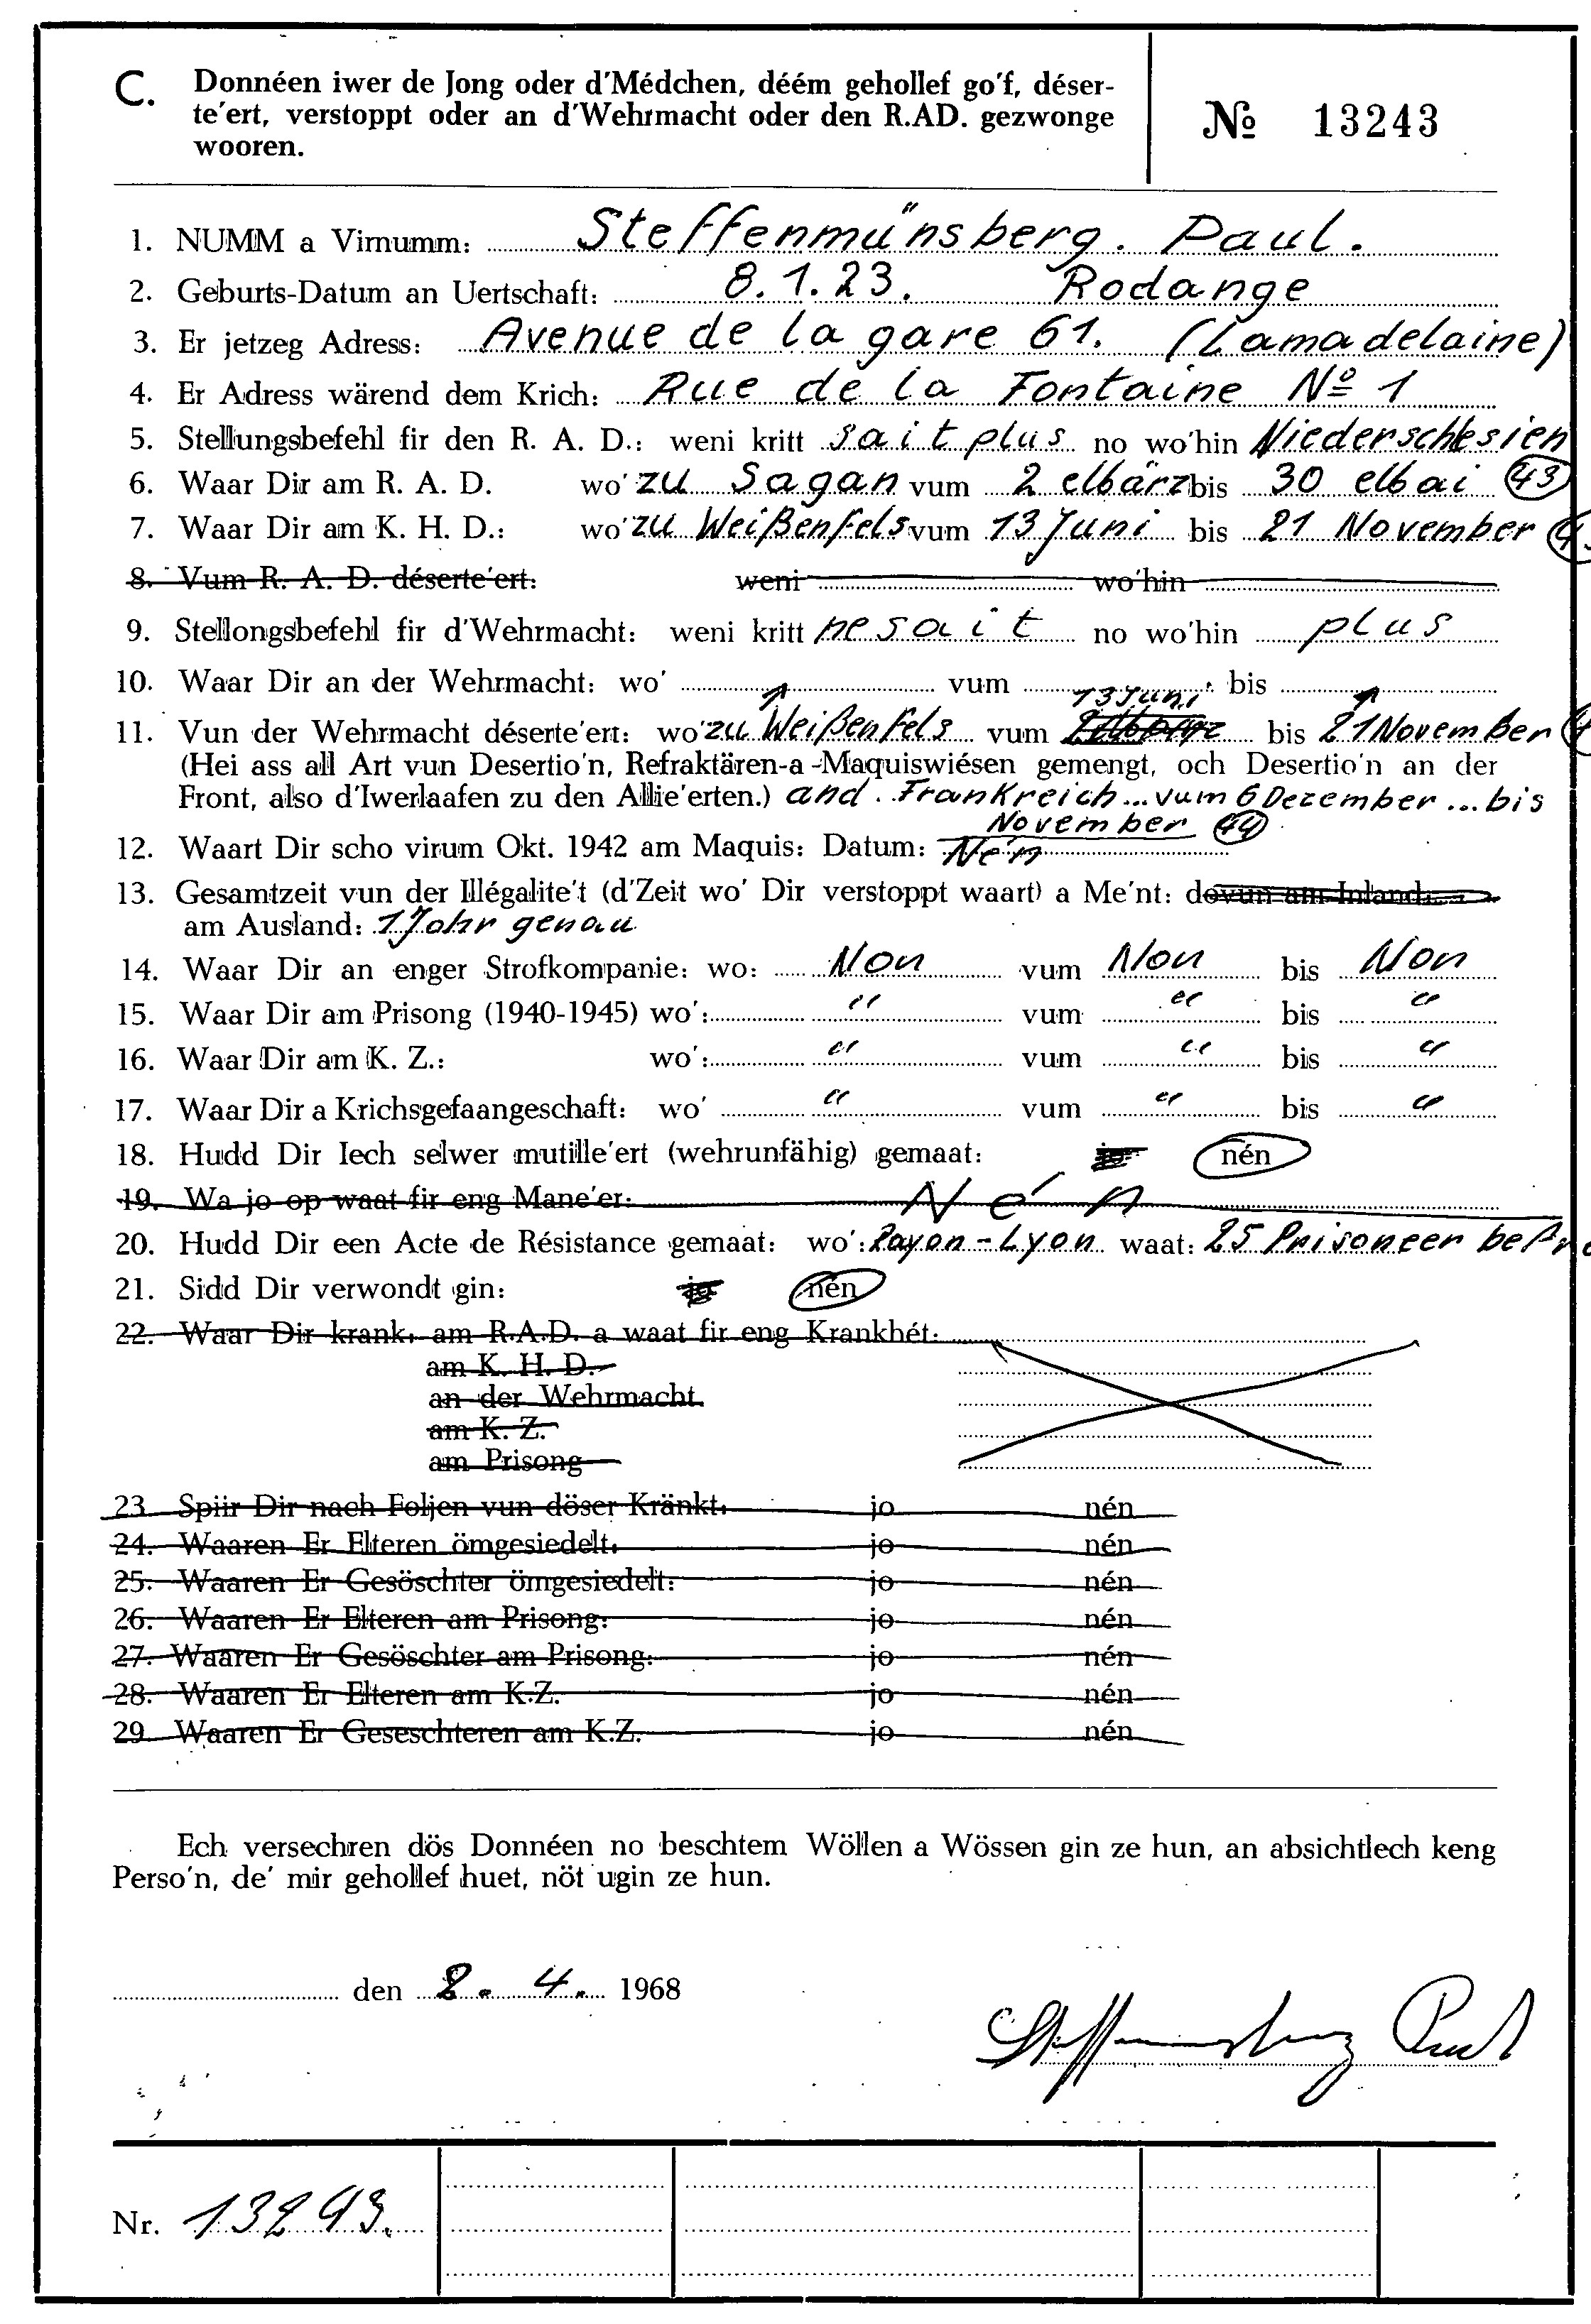 C. Donnéen iwer de Jong oder d'Médchen, déém gehollef go'f, déser-
te'ert, verstoppt oder an d'Wehrmacht oder den R.AD. gezwonge
wooren.
№ 13243
1. NUMM a Virnumm: Steffenmünsberg. Paul.
2. Geburts-Datum an Uertschaft: 8.1.23. Rodange
3. Er jetzeg Adress: Avenue de la gare 61. (Lamadelaine)
4. Er Adress wärend dem Krich: Rue de la Fontaine Nº 1
5. Stellungsbefehl fir den R. A. D.: weni kritt sait plus no wo'hin Niederschlesien
6. Waar Dir am R. A. D. wo' zu Sagan vum 2 März bis 30 Mai 43
7. Waar Dir am K. H. D.: wo' zu Weißenfels vum 13 Juni bis 21 November
8. Vum R. A. D. déserte'ert: weni wo'hin
9. Stellongsbefehl fir d'Wehrmacht: weni kritt ne sait no wo'hin plus
10. Waar Dir an der Wehrmacht: wo' vum bis
13 Juni
11. Vun der Wehrmacht déserte'ert: wo' zu Weißenfels vum bis 21 November
(Hei ass all Art vun Desertio'n, Refraktären-a-Maquiswiésen gemengt, och Desertio'n an der
Front, also d'Iwerlaafen zu den Allie'erten.) and. Frankreich... vum 6 Dezember ... bis
November 44
12. Waart Dir scho virum Okt. 1942 am Maquis: Datum: Né'n
13. Gesamtzeit vun der Illégalite't (d'Zeit wo' Dir verstoppt waart) a Me'nt: dovun am Inland:
am Ausland: 1 Johr genau
14. Waar Dir an enger Strofkompanie: wo: Non vum Non bis Non
15. Waar Dir am Prisong (1940-1945) wo': " vum " bis "
16. Waar Dir am K. Z.: wo': " vum " bis "
17. Waar Dir a Krichsgefaangeschaft: wo' " vum " bis "
18. Hudd Dir Iech selwer mutille'ert (wehrunfähig) gemaat: jo nén
19. Wa jo op waat fir eng Mane'er: Né n
20. Hudd Dir een Acte de Résistance gemaat: wo': Rayon-Lyon waat: 25 Prisoneer
21. Sidd Dir verwondt gin: jo nén
22. Waar Dir krank: am R.A.D. a waat fir eng Krankhét:
am K. H. D.
an der Wehrmacht
am K. Z.
am Prisong
23. Spiir Dir nach Foljen vun döser Kränkt: jo nén
24. Waaren Er Elteren ömgesiedelt: jo nén
25. Waaren Er Gesöschter ömgesiedelt: jo nén
26. Waaren Er Elteren am Prisong: jo nén
27. Waaren Er Gesöschter am Prisong: jo nén
28. Waaren Er Elteren am K.Z. jo nén
29. Waaren Er Geseschteren am K.Z. jo nén
Ech versechren dös Donnéen no beschtem Wöllen a Wössen gin ze hun, an absichtlech keng
Perso'n, de' mir gehollef huet, nöt ugin ze hun.
den 8. 4. 1968
Steffenmünsberg Paul
Nr. 13243.